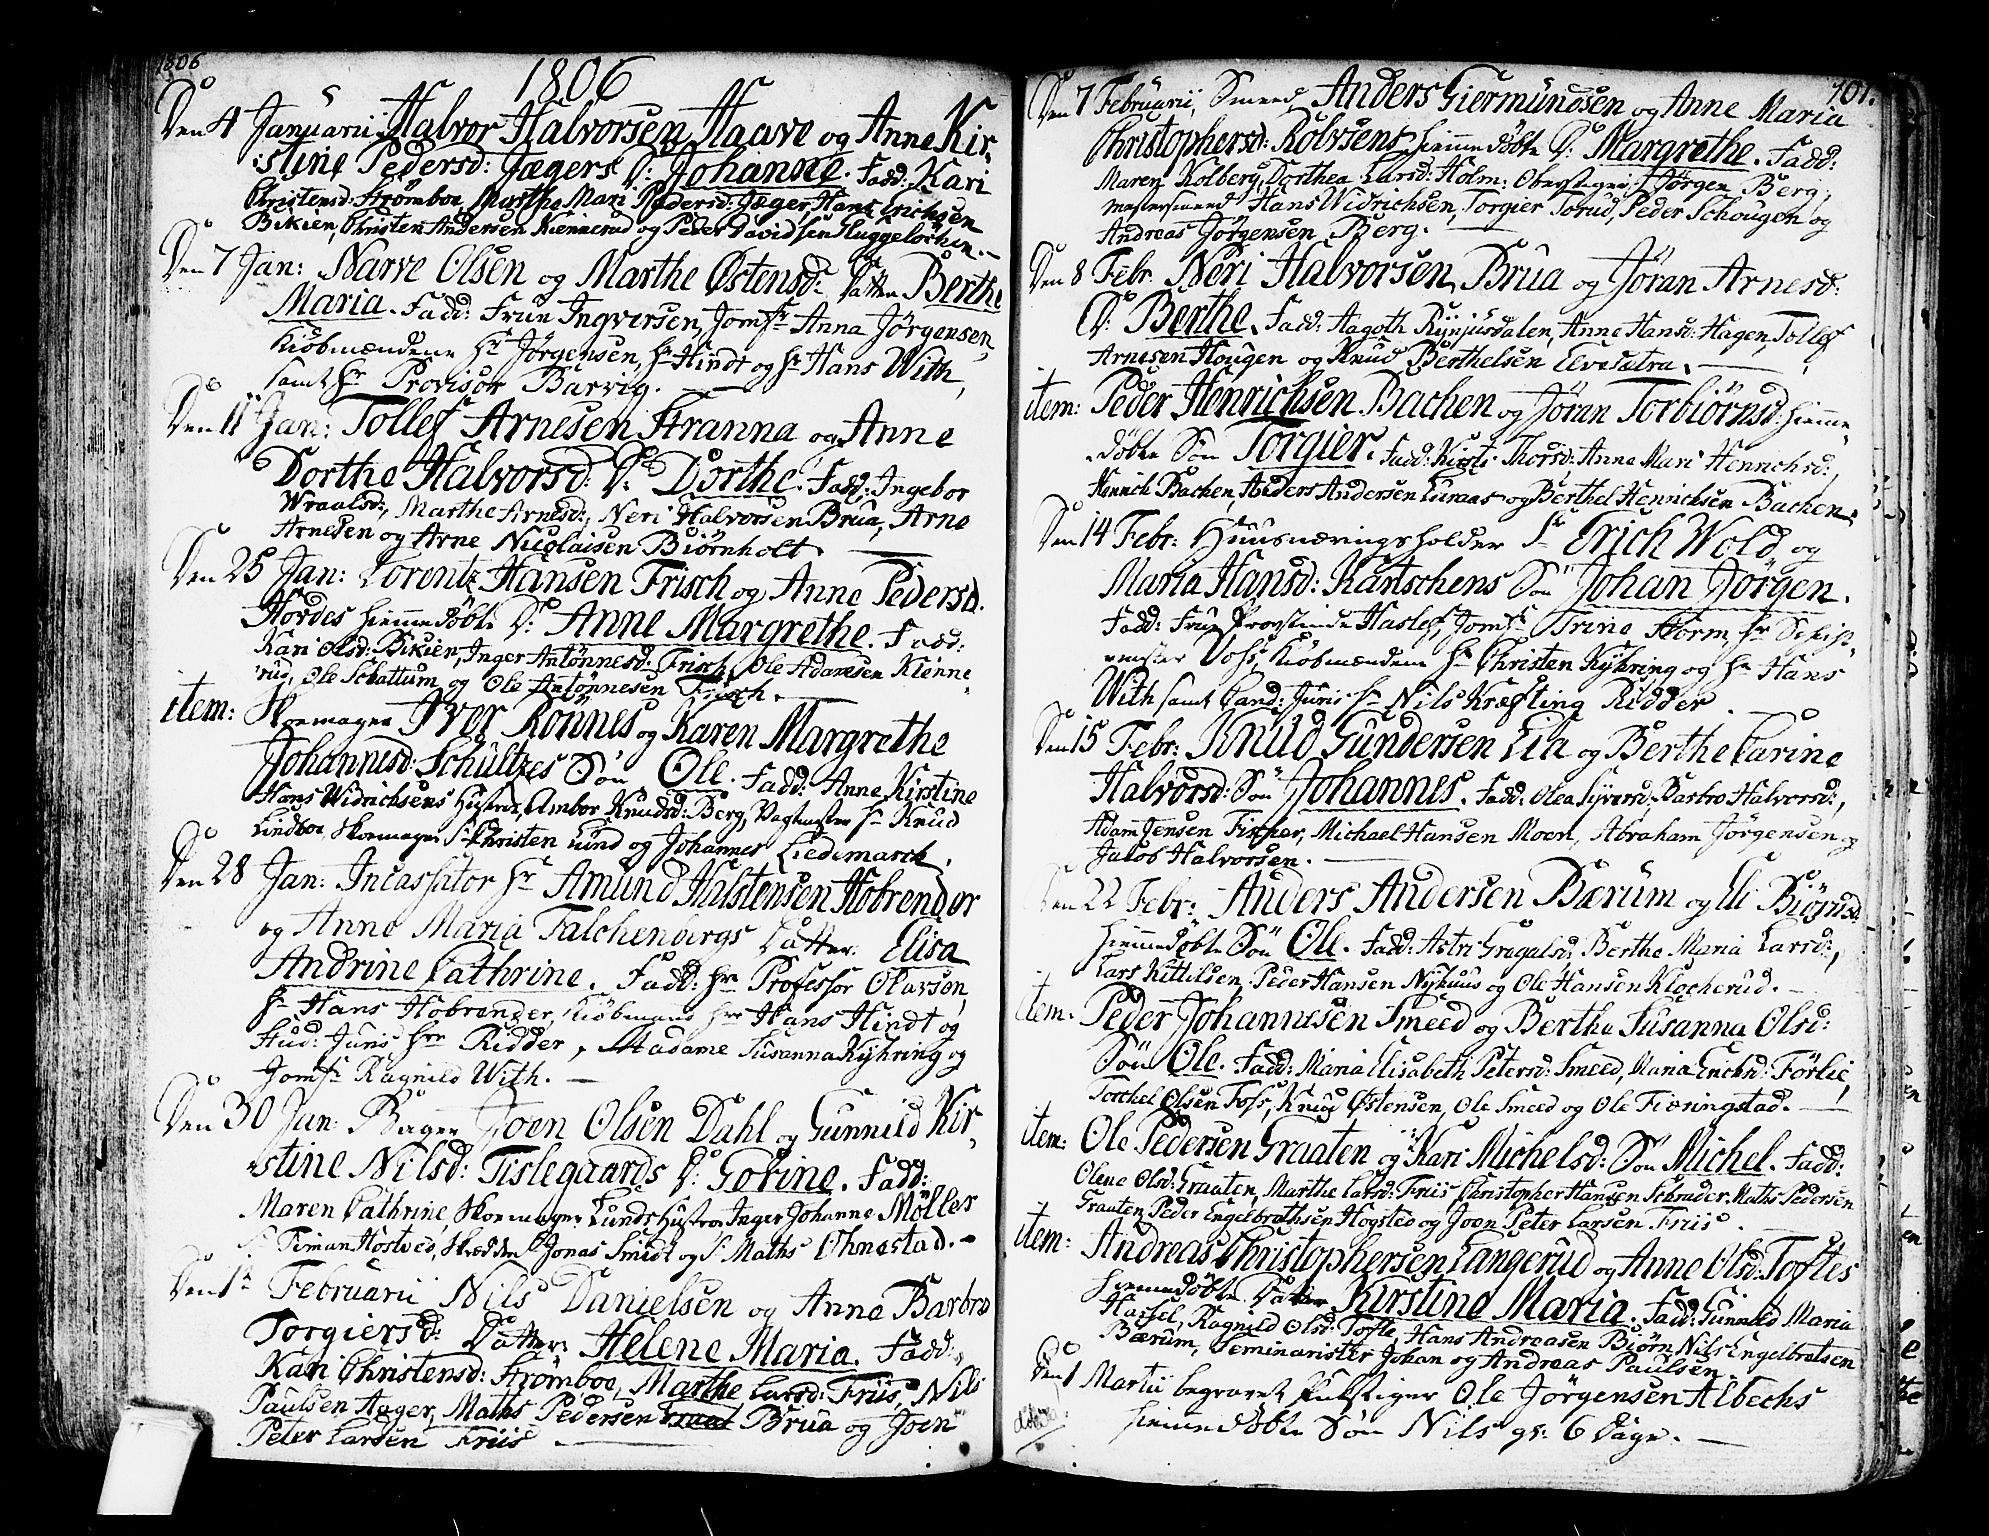 1806
1806
Den 4 Januarii Halvor Halvorsen Haave og Anne Kir-
stine Pedersd: Jægers D: Johanne. Fadd: Kari
Christensd: Strömboe, Marthe Mari Pedersd: Jæger, Hans Erichsen
Bikien, Christen Andersen Kiennerud og Peder Davidsen Huggelochen.
Den 7 Jan: Narve Olsen og Marthe Østensd: Datter Berthe
Maria. Fadd: Frue Ingversen, Jomfr Anna Jörgensen,
Kiöbmændene Hr Jörgensen, Hr Hindt og Hr Hans With,
samt Hr Provisor Barvig.
Den 11 Jan: Tollef Arnesen Stranna og Anne
Dorthe Halvorsd: D: Dorthe. Fadd: Ingebor
Wraalsd:, Marthe Arnesd:, Neri Halvorsen Brua, Arne
Arnesen og Arne Nicolaisen Biörnholt.
Den 25 Jan: Lorentz Hansen Frisch og Anne Pedersd.
Hordes hiemmedöbte D: Anne Margrethe. Fadd:
Kari Olsd: Bikien, Inger Antönnesd: Frisch, Ole Adamsen Kienne-
rud, Ole Schattum og Ole Antönnesen Frisch.
item: Skoemager Iver Rönnes og Karen Margrethe
Johannisd: Schultzes Sön Ole. Fadd: Anne Kirstine
Hans Widrichsens Hustroe, Ambor Knudsd: Berg, Vagtmester Hr Knud
Lindboe, Skoemager Sr Christen Lund og Johannes Liedemarch.
Den 28 Jan: Incassator Hr Amund Halstensen Hobrender
og Anne Maria Falchenbergs Datter Elisa
Andrine Cathrine. Fadd: Hr Professor Olavsen,
Hr Hans Hobrender, Kiöbmand Hr Hans Hindt og
Stud: Juris Hr Ridder, Madame Susanna Kyhring og
Jomfr Ragnild With.
Den 30 Jan: Bager Joen Olsen Dahl og Gunnild Kir-
stine Nilsd: Tislegaards D: Gorine. Fadd:
Maren Cathrine, Skoemager Lunds Hustroe Inger Johanne Möller
Sr Timan Hostved, Skrædder Jonas Smidt og Sr Maths Ohnestad.
Den 1 Februarii Nils Danielsen og Anne Barbro
Torgiersd: Datter Helene Maria. Fadd:
Kari Christensd: Strömboe, Marthe Larsd: Friis, Nils
Paulsen Aager, Maths Pedersen Brua og Joen
Peter Larsen Friis
701.
Den 7 Februarii, Smeed Anders Giermundsen og Anne Maria
Christophersd: Rolvsens hiemmedöbte D: Margrethe. Fadd:
Maren Kolberg, Dorthea Larsd: Holm: Oberstiger Jörgen Berg,
Mestersmeed Hans Widrichsen, Torgier Torud, Peder Schougen og
Andreas Jörgensen Berg.
Den 8 Febr. Neri Halvorsen Brua og Jöran Arnesd:
D: Berthe. Fadd: Aagoth Rynjusdalen, Anne Hansd: Hagen, Tollef
Arnesen Hougen og Knud Berthelsen Elvesætra.
item: Peder Henrichsen Bachen og Jöran Torbiörnsd: hiemme-
döbte Sön Torgier. Fadd: Kirsti Thorsd: Anne Mari Henrichsd:,
Henrich Bachen, Anders Andersen Luraas og Berthel Henrichsen Bachen.
Den 14 Febr: Huusnæringsholder Sr Erich Wold og
Maria Hansd: Kartschens Sön Johan Jörgen.
Fadd: Frue Provstinde Haslef, Jomfr Trine Storm, Hr Schicht-
mester Vohs, Kiöbmændene Hr Christen Kyhring og Hr Hans
With samt Cand: Juris Hr Nils Kræfting Ridder.
Den 15 Febr: Knud Gundersen Lia og Berthe Carine
Halvorsd: Sön Johannes. Fadd: Olea Syversd: Barbro Halvorsd:,
Adam Jensen Fischer, Michael Hansen Moen, Abraham Jörgensen og
Jacob Halvorsen.
Den 22 Febr: Anders Andersen Bærum og Eli Biörnsd:
hiemmedöbte Sön Ole. Fadd: Astri Gregalsd: Berthe Maria Larsd:,
Lars Kittilsen, Peder Hansen Nyhuus og Ole Hansen Klocherud.
item: Peder Johannesen Smeed og Berthe Susanna Olsd:
Sön Ole. Fadd: Maria Elisabeth Petersd: Smeed, Maria Erichsd: Förlie,
Torchel Olsen Foss, Knud Østensen, Ole Smeed og Ole Fiæringstad.
item: Ole Pedersen Graaten og Kari Michelsd: Sön Michel. Fadd:
Olene Olsd: Graaten, Marthe Larsd: Friis Christopher Hansen Schrader, Maths Pedersen
Graaten, Peder Engelbrethsen Hogsted og Joen Peter Larsen Friis.
item: Andreas Christophersen Langerud og Anne Olsd: Toftes
hiemmedöbte Datter Kirstine Maria. Fadd: Gunnild Maria
Hassel, Ragnild Olsd: Tofte, Hans Andreasen Biörn, Nils Engelbretsen
Bærum, Seminarister Johan og Andreas Paulsen.
Den 1 Martii begravet Pukstiger Ole Jörgensen Albechs
hiemmedöbte Sön Nils gl: 6 Dage.